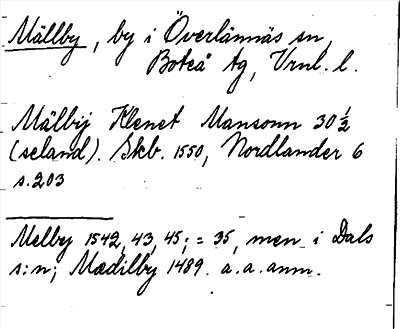 Mällby, by i Överlännäs sn,
Boteå tg, Vrnl. l.
Mälbij Klenet Mansonn 30 1/2
(seland). Skb. 1550, Nordlander 6
s. 203
Melby 1542, 43, 45; = 35, men i Dals
s:n; Mædilby 1489. a. a. anm.